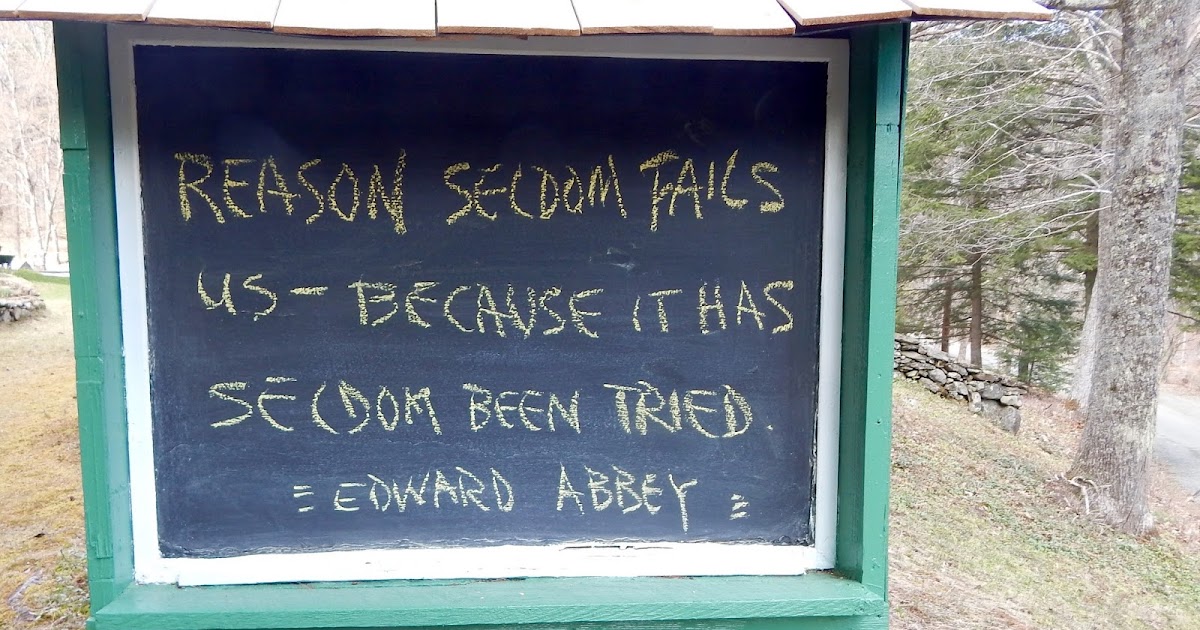 REASON SELDOM FAILS
US - BECAUSE IT HAS
SELDOM BEEN TRIED.
= EDWARD ABBEY =